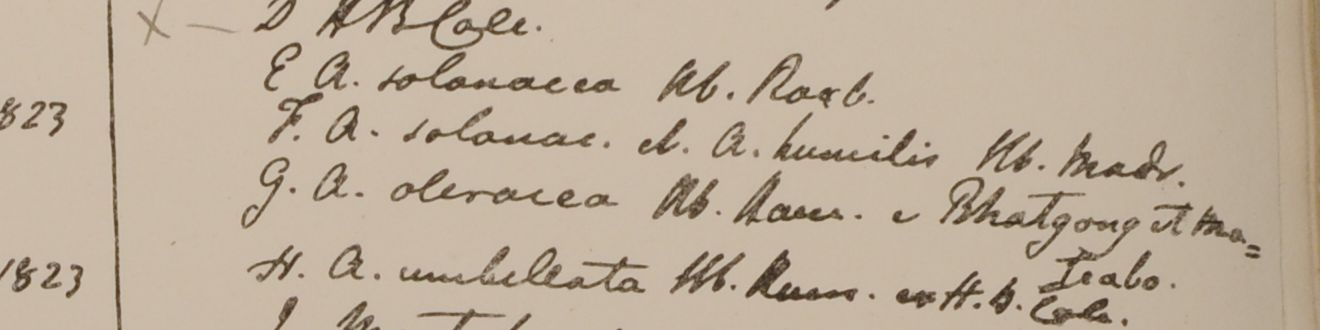 X — D H B Calc.
E A. solanacea Hb. Roxb.
823 F. A. solanac. et. A. humilis Hb. Madr.
G. A. oleracea Hb. Ham. e Bhatgong et Ma=
Irabo.
1823 H. A. umbellata Hb. Russ. ex H. B. Calc.